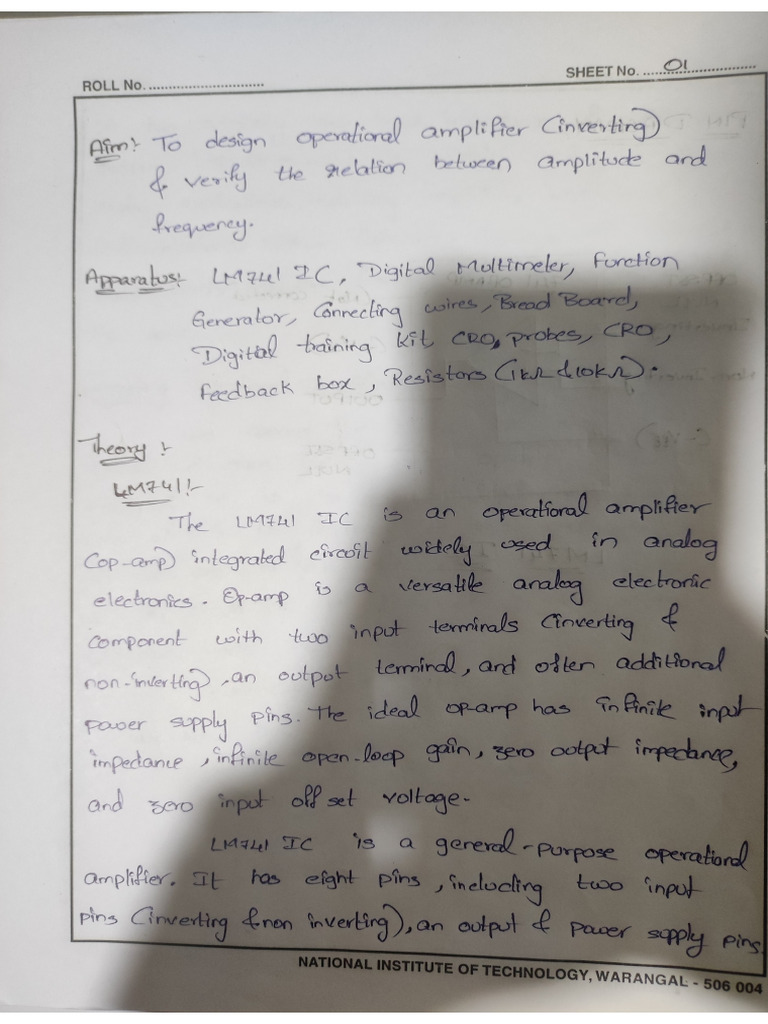 ROLL No. ............................
SHEET No. ....01....................
Aim:- To design operational amplifier (inverting)
& verify the relation between amplitude and
frequency.
Apparatus:- LM741 IC, Digital Multimeter, Function
Generator, Connecting wires, Bread Board,
Digital training kit, CRO, probes, CRO,
feedback box, Resistors (1kΩ & 10kΩ).
Theory :-
LM741:-
The LM741 IC is an operational amplifier
(op-amp) integrated circuit widely used in analog
electronics. Op-amp is a versatile analog electronic
component with two input terminals (inverting &
non-inverting), an output terminal, and often additional
power supply pins. The ideal op-amp has infinite input
impedance, infinite open-loop gain, zero output impedance,
and zero input offset voltage.
LM741 IC is a general-purpose operational
amplifier. It has eight pins, including two input
pins (inverting & non inverting), an output & power supply pins.
NATIONAL INSTITUTE OF TECHNOLOGY, WARANGAL - 506 004